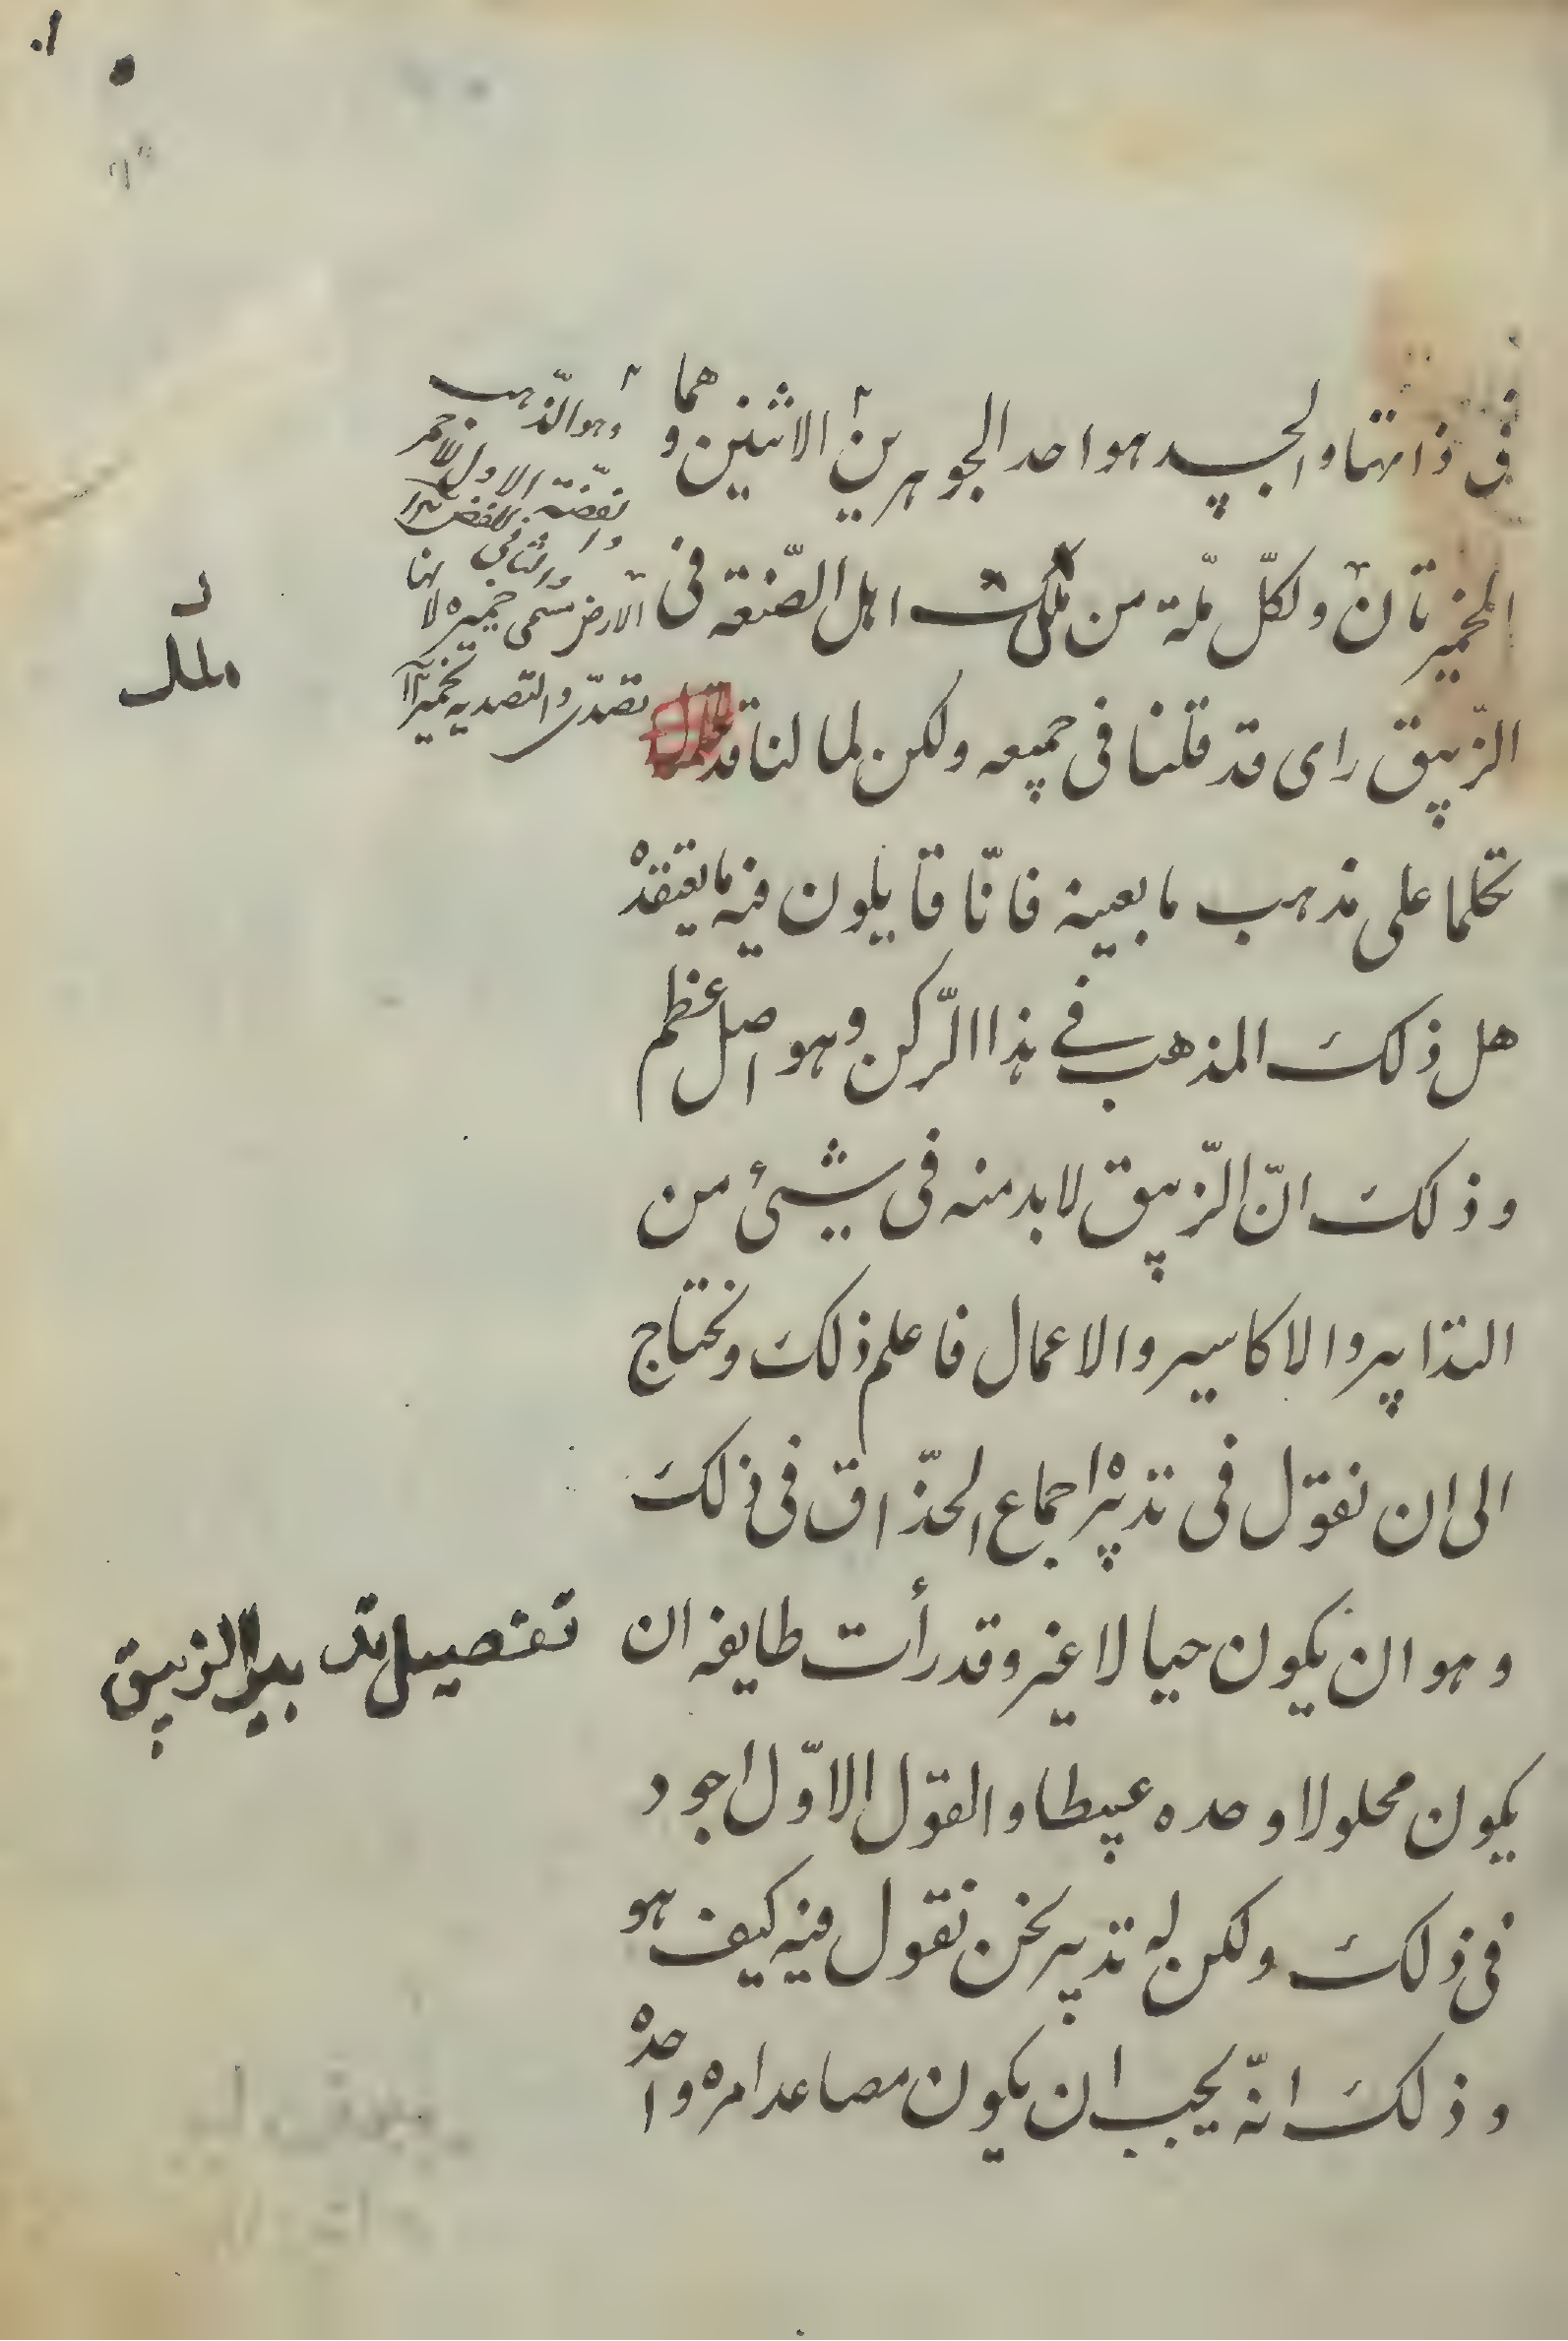 فى ذاتها والجسد هو احد الجوهرين الاثنين و هما
الخميرتان ولكلّ ملّة من ملك اهل الصّنعة فى
الزّيبق راى قد قلنا فى جميعه ولكن لما لنا قد
تكلما على مذهب ما بعينه فانّا قايلون فيه ما يعتقده
هل ذلك المذهب فى هذا الرّكن وهو اصل عظم
وذلك انّ الزّيبق لابد منه فى شيئ من
التدابير والاكاسير والاعمال فاعلم ذلك ونحتاج
الى ان نقول فى تدبيره اجماع الحذّاق فى ذلك
وهو ان يكون حيا لا غير وقد رأت طايفه ان
يكون محلولا وحده عبيطا والقول الاوّل اجود
فى ذلك ولكن له تدبير نحن نقول فيه كيف هو
وذلك انّه يجب ان يكون مصاعدا مره واحده
وهو الذّهب
والفضّة الاول للاحمر
والثانى
الارض تسمى خميره لا نها
والتصديه تخمير
تفصيل تدبير الزيبق